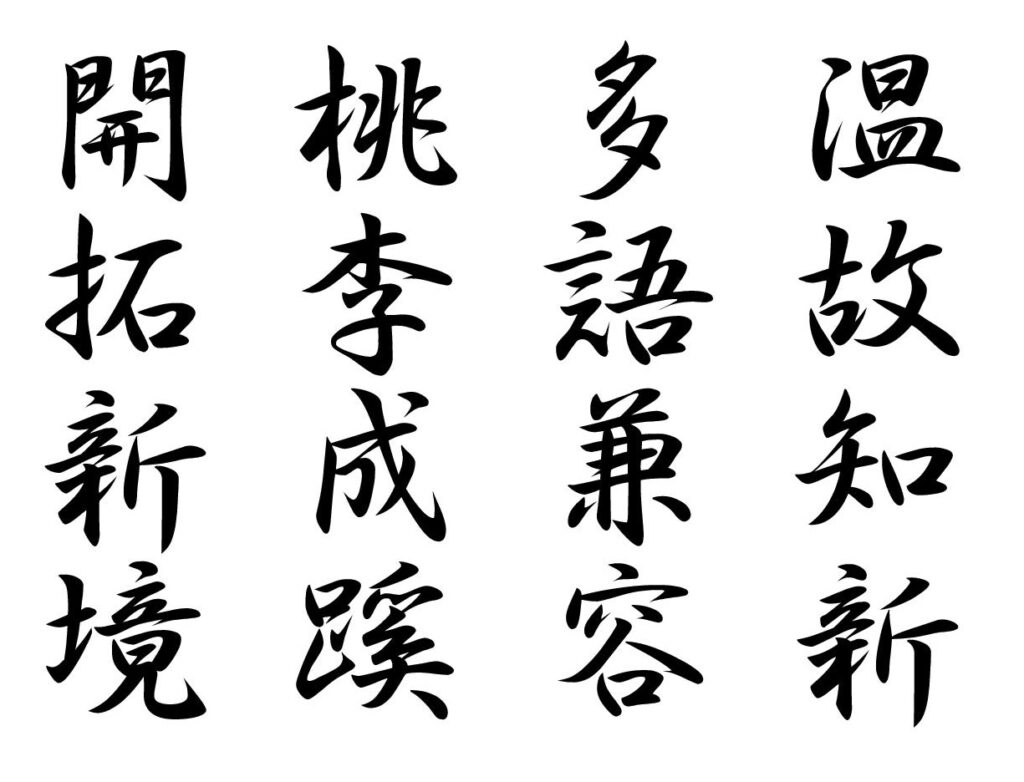 温故知新
多語兼容
桃李成蹊
開拓新境